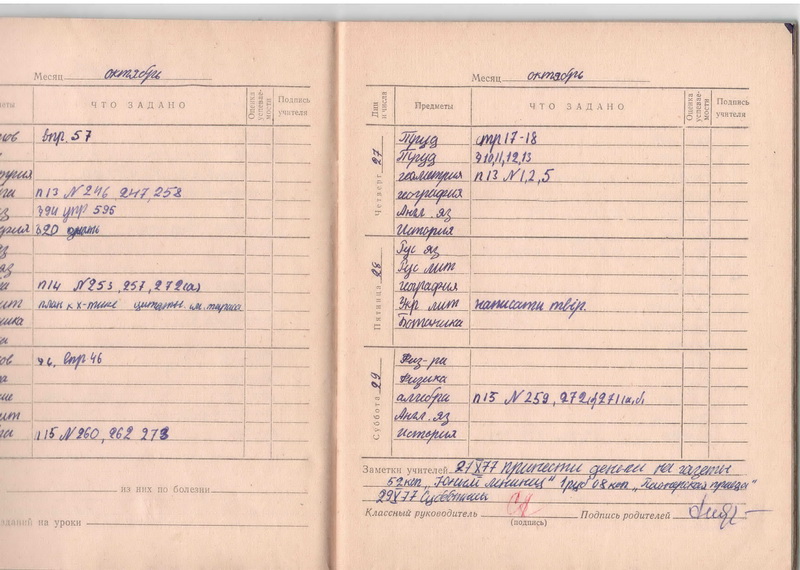 Месяц октябрь
ЧТО ЗАДАНО
Оценка успевае-мости
Подпись учителя
впр. 57
п13 №246 247, 258
з 94 упр 596
§20
п14 №253, 257, 272(а)
план к х-тике цитаты. им. тараса
впр 46
п15 №260, 262 273
из них по болезни
Месяц октябрь
Дни и числа
Предметы
ЧТО ЗАДАНО
Оценка успевае-мости
Подпись учителя
Четверг 27
Труд стр 17-18
Труд з 10,11,12,13
геометрия п13 №1,2,5
география
Англ. яз
История
Пятница 28
Рус яз
Рус лит
география
Укр лит написати твір.
Ботаника
Суббота 29
Физ-ра
Физика
алгебра п15 №259, 272
Англ. яз
история
Заметки учителей 27 X 77 Принести деньги на газеты
52 коп „Юный ленинец" 1 руб 08 коп „Пионерская правда"
29 X 77
Классный руководитель
(подпись)
Подпись родителей